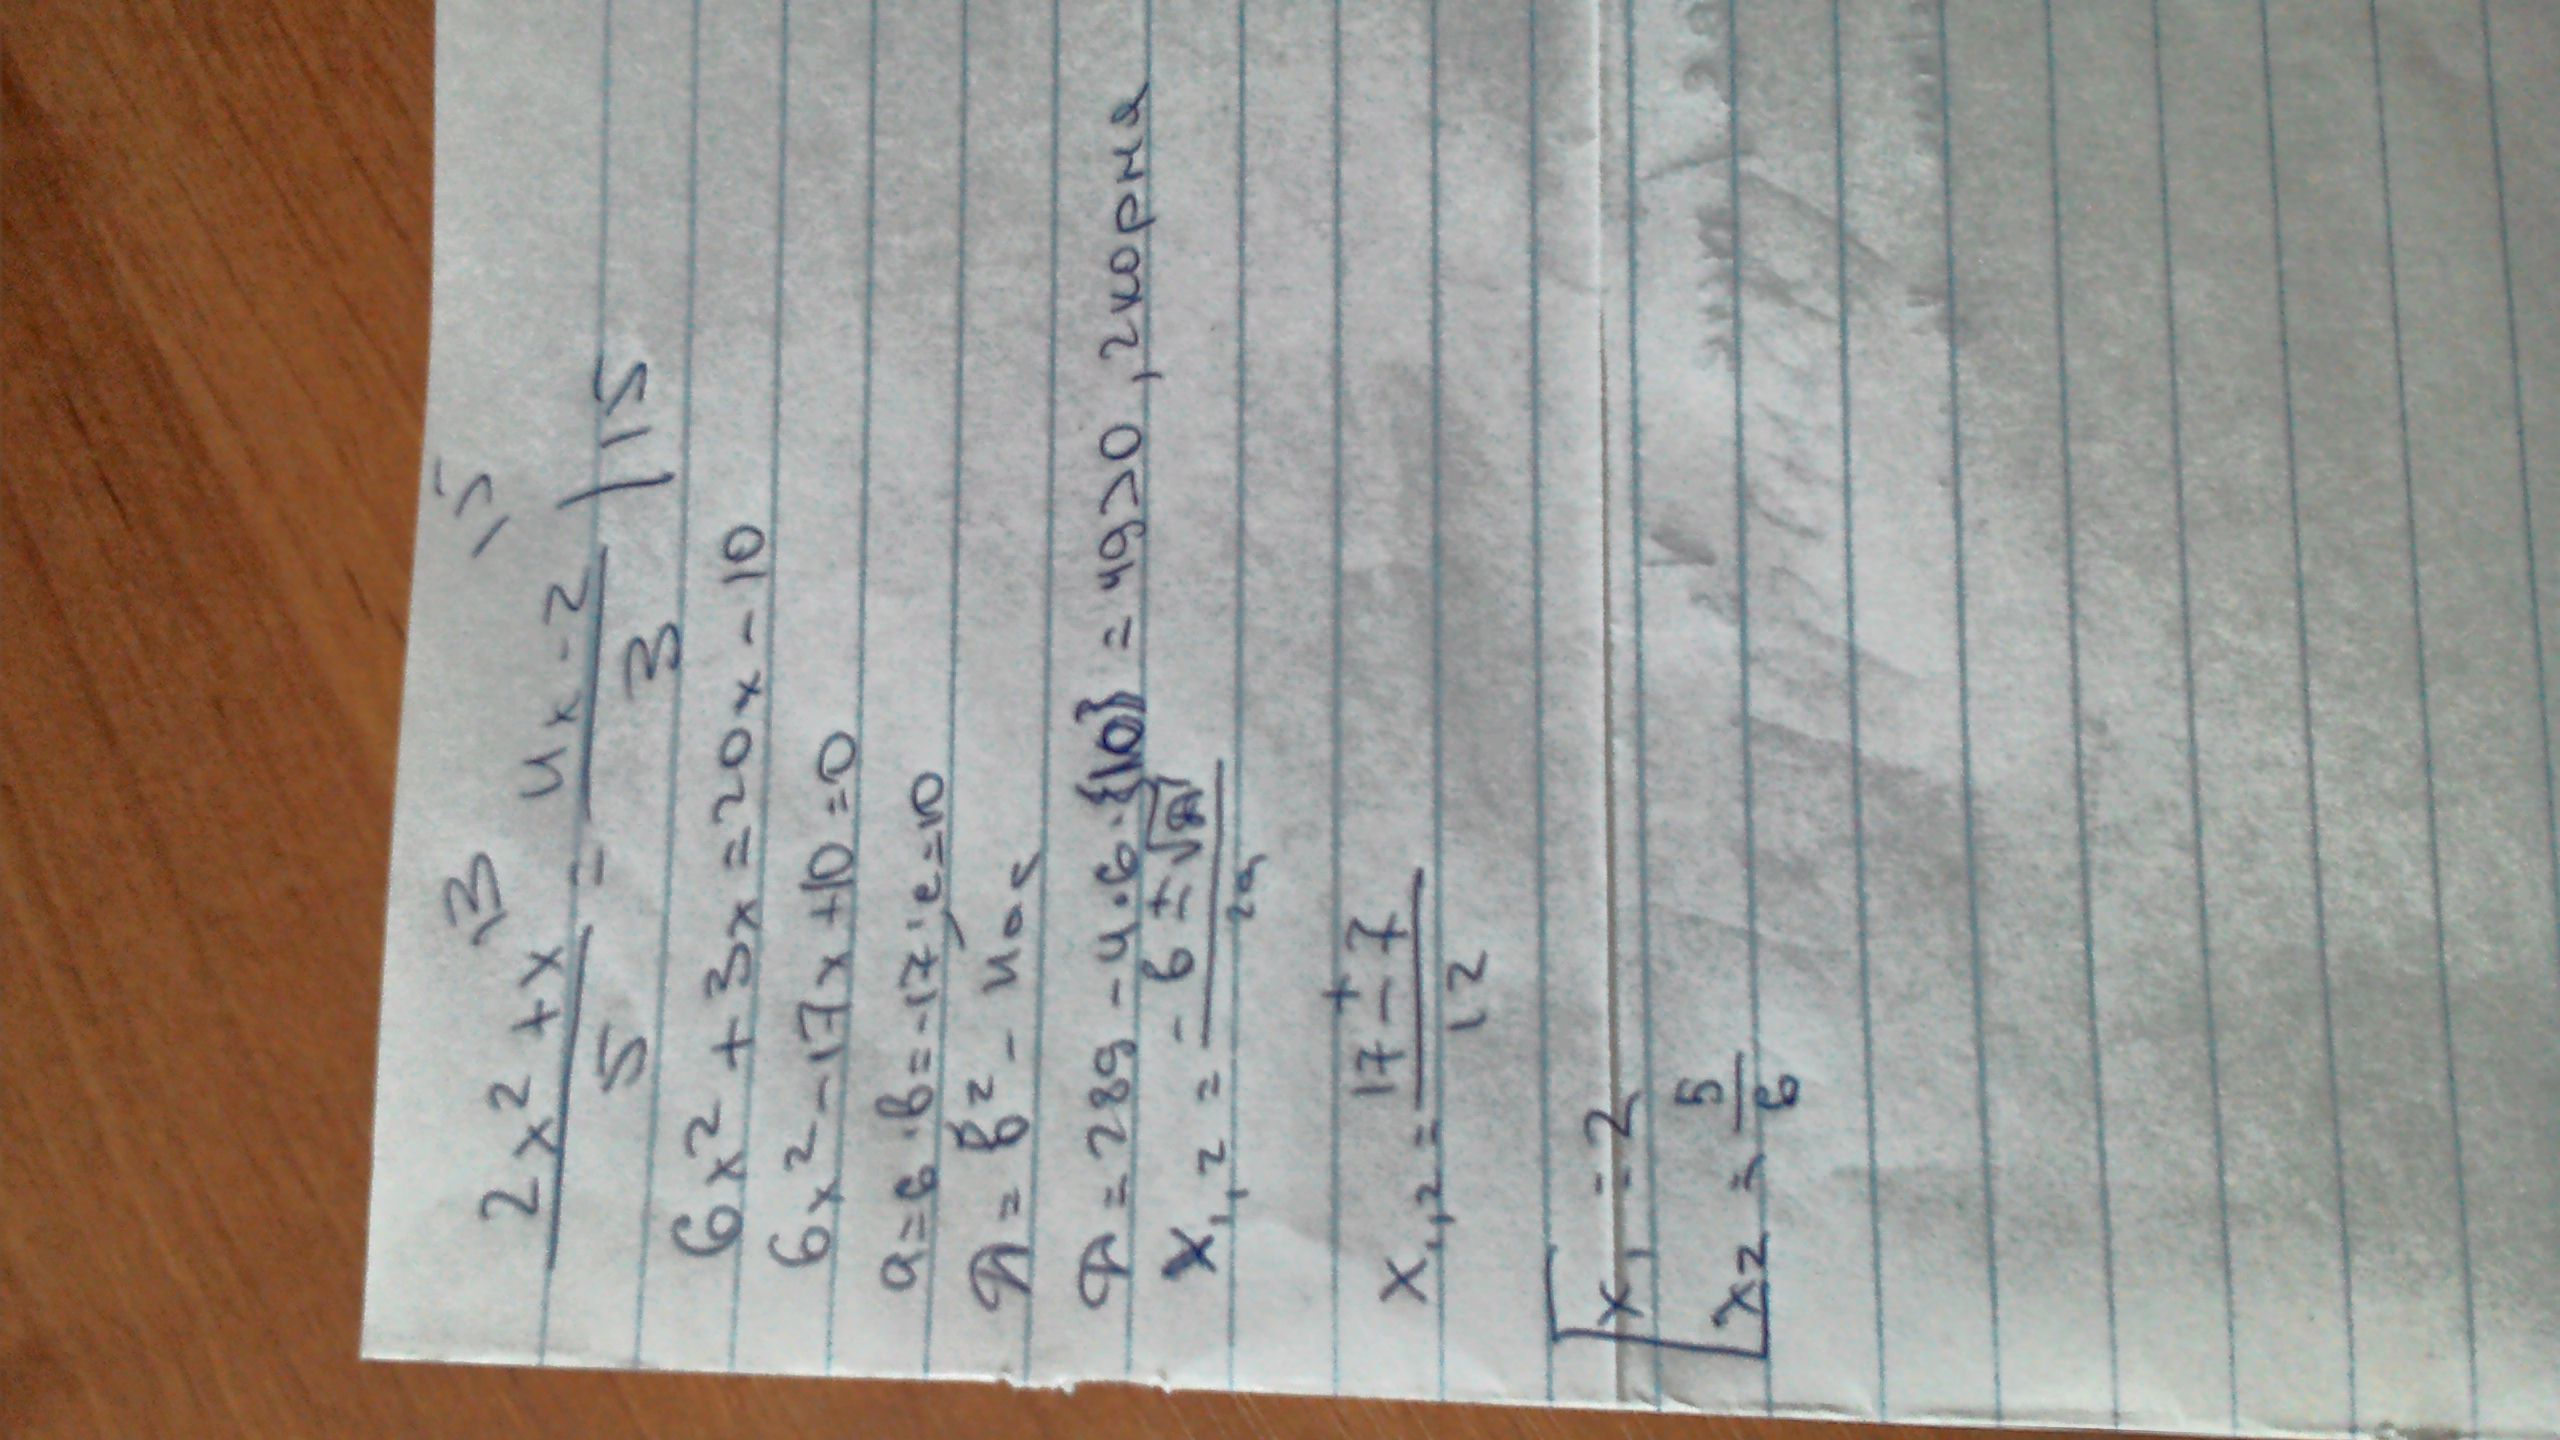 \3 \5
(2x² + x)/5 = (4x - 2)/3 | 15
6x² + 3x = 20x - 10
6x² - 17x + 10 = 0
a = 6, b = -17, c = 10
D = b² - 4ac
D = 289 - 4·6·(10) = 49 > 0, 2 корня
x₁,₂ = (-b ± √D)/2a
x₁,₂ = (17 ± 7)/12
[ x₁ = 2
[ x₂ = 5/6